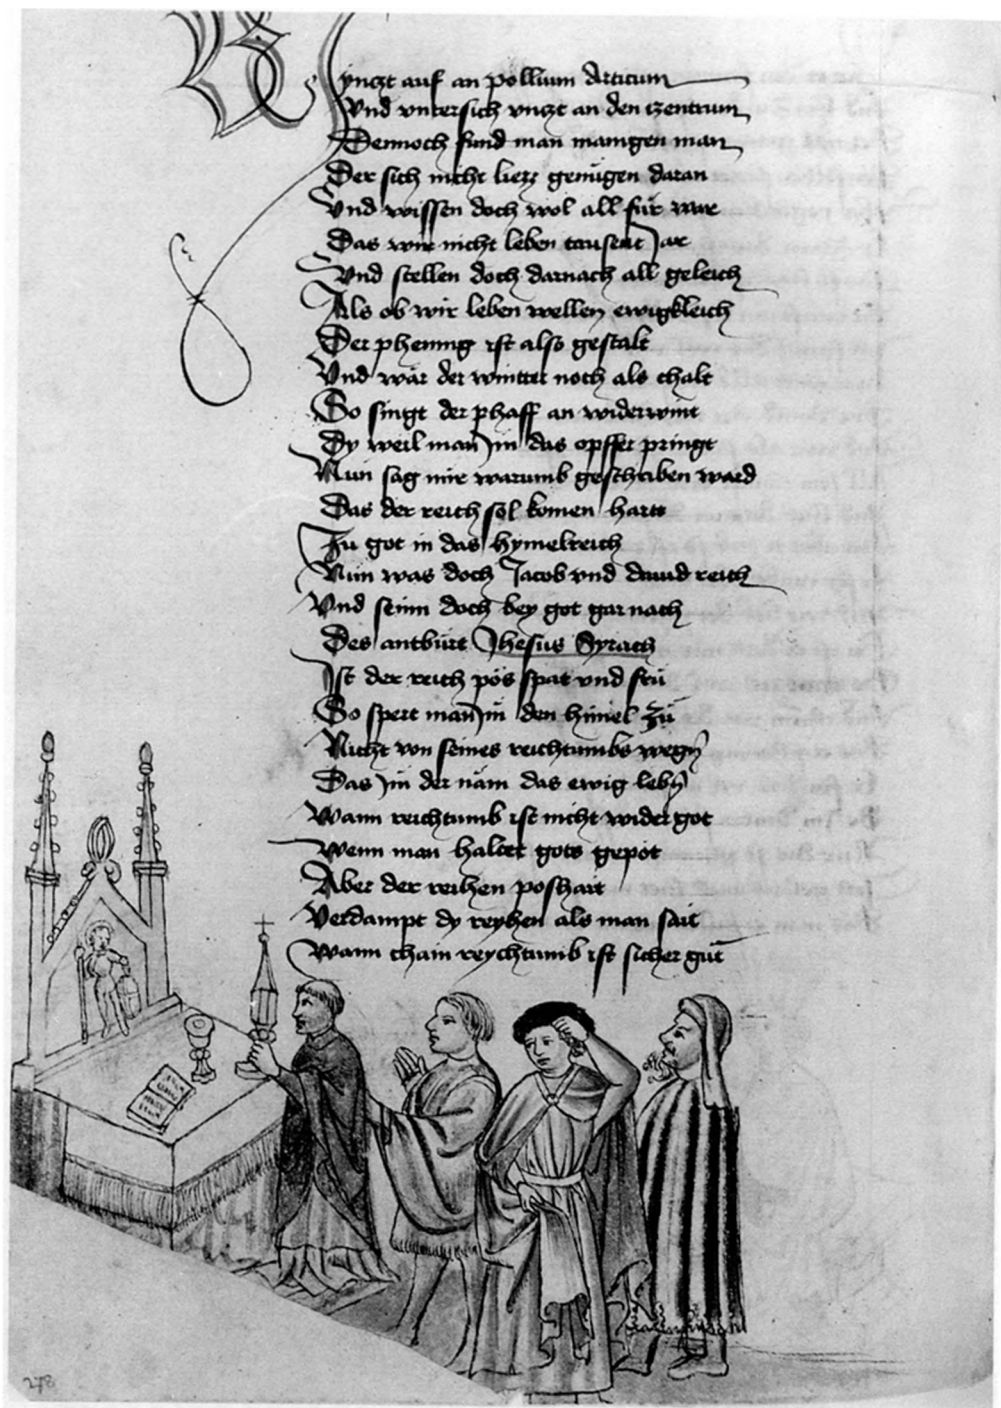 Vynczt auf an pollium Articum
Vnd vntersich vnczt an den czentrum
Dennoch fund man manigen man
Der sich nicht liezz genügen daran
Vnd wissen doch wol all für war
Das wir nicht leben tausent Jar
Vnd stellen doch darnach all geleich
Als ob wir leben wellen ewigkleich
Der phening ist also gestalt
Vnd wär der wintter noch als chalt
So singt der phaff an widerwint
Dy weil man im das opffer pringt
Nun sag mir warumb geschriben ward
Das der reich sol komen hartt
Zu got in das hymelreich
Nun was doch Jacob vnd dauid reich
Vnd seinn doch bey got gar nach
Des antbürt Jhesus Syrach
Ist der reich pös spat vnd frü
So spert man im den himel zü
Nicht von seines reichtumbs wegn
Das im der näm das ewig lebn
Wann reichtumb ist nicht wider got
Wenn man haltet gots gepot
Aber der reihen poshait
Verdampt dy reyhen als man sait
Wann chain reychtumb ist sicher güt
278